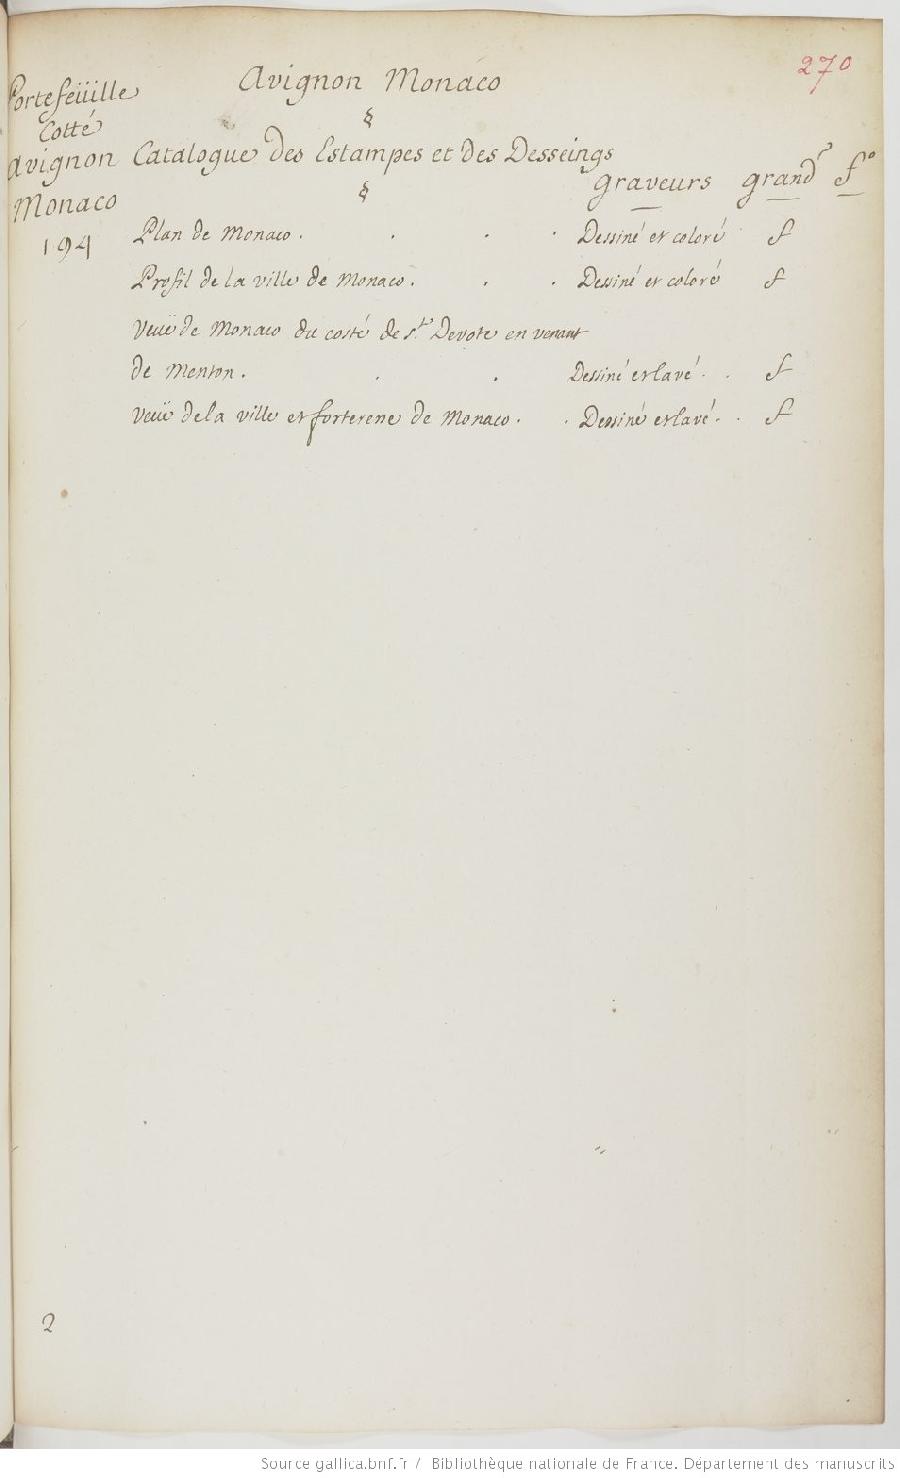 270
Avignon Monaco
Portefeüille
Cotté
Avignon
Monaco
194
§
Catalogue des Estampes et des Desseings
§
graveurs grand^r f°
Plan de Monaco . . . . Dessiné et coloré f
Profil de la ville de Monaco . . . Dessiné et coloré f
Veüe de Monaco du costé de s.te Devote en venant
de Menton . . . Dessiné et lavé . . f
Veüe de la ville et forteresse de Monaco . . Dessiné et lavé . . f
2
Source gallica.bnf.fr / Bibliothèque nationale de France. Département des manuscrits